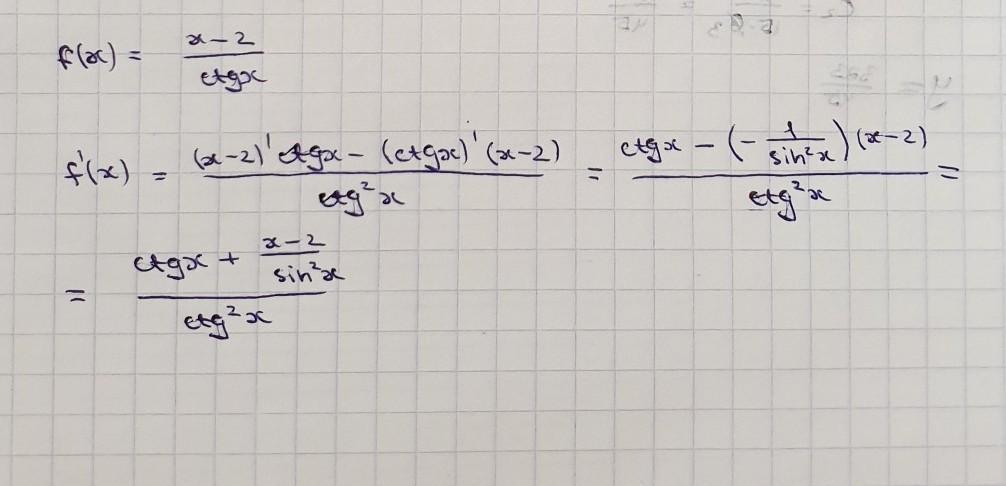 f(x) = (x-2)/(ctgx)
f'(x) = ((x-2)'ctgx - (ctgx)'(x-2))/(ctg²x) = (ctgx - (-1/(sin²x))(x-2))/(ctg²x) =
= (ctgx + (x-2)/(sin²x))/(ctg²x)